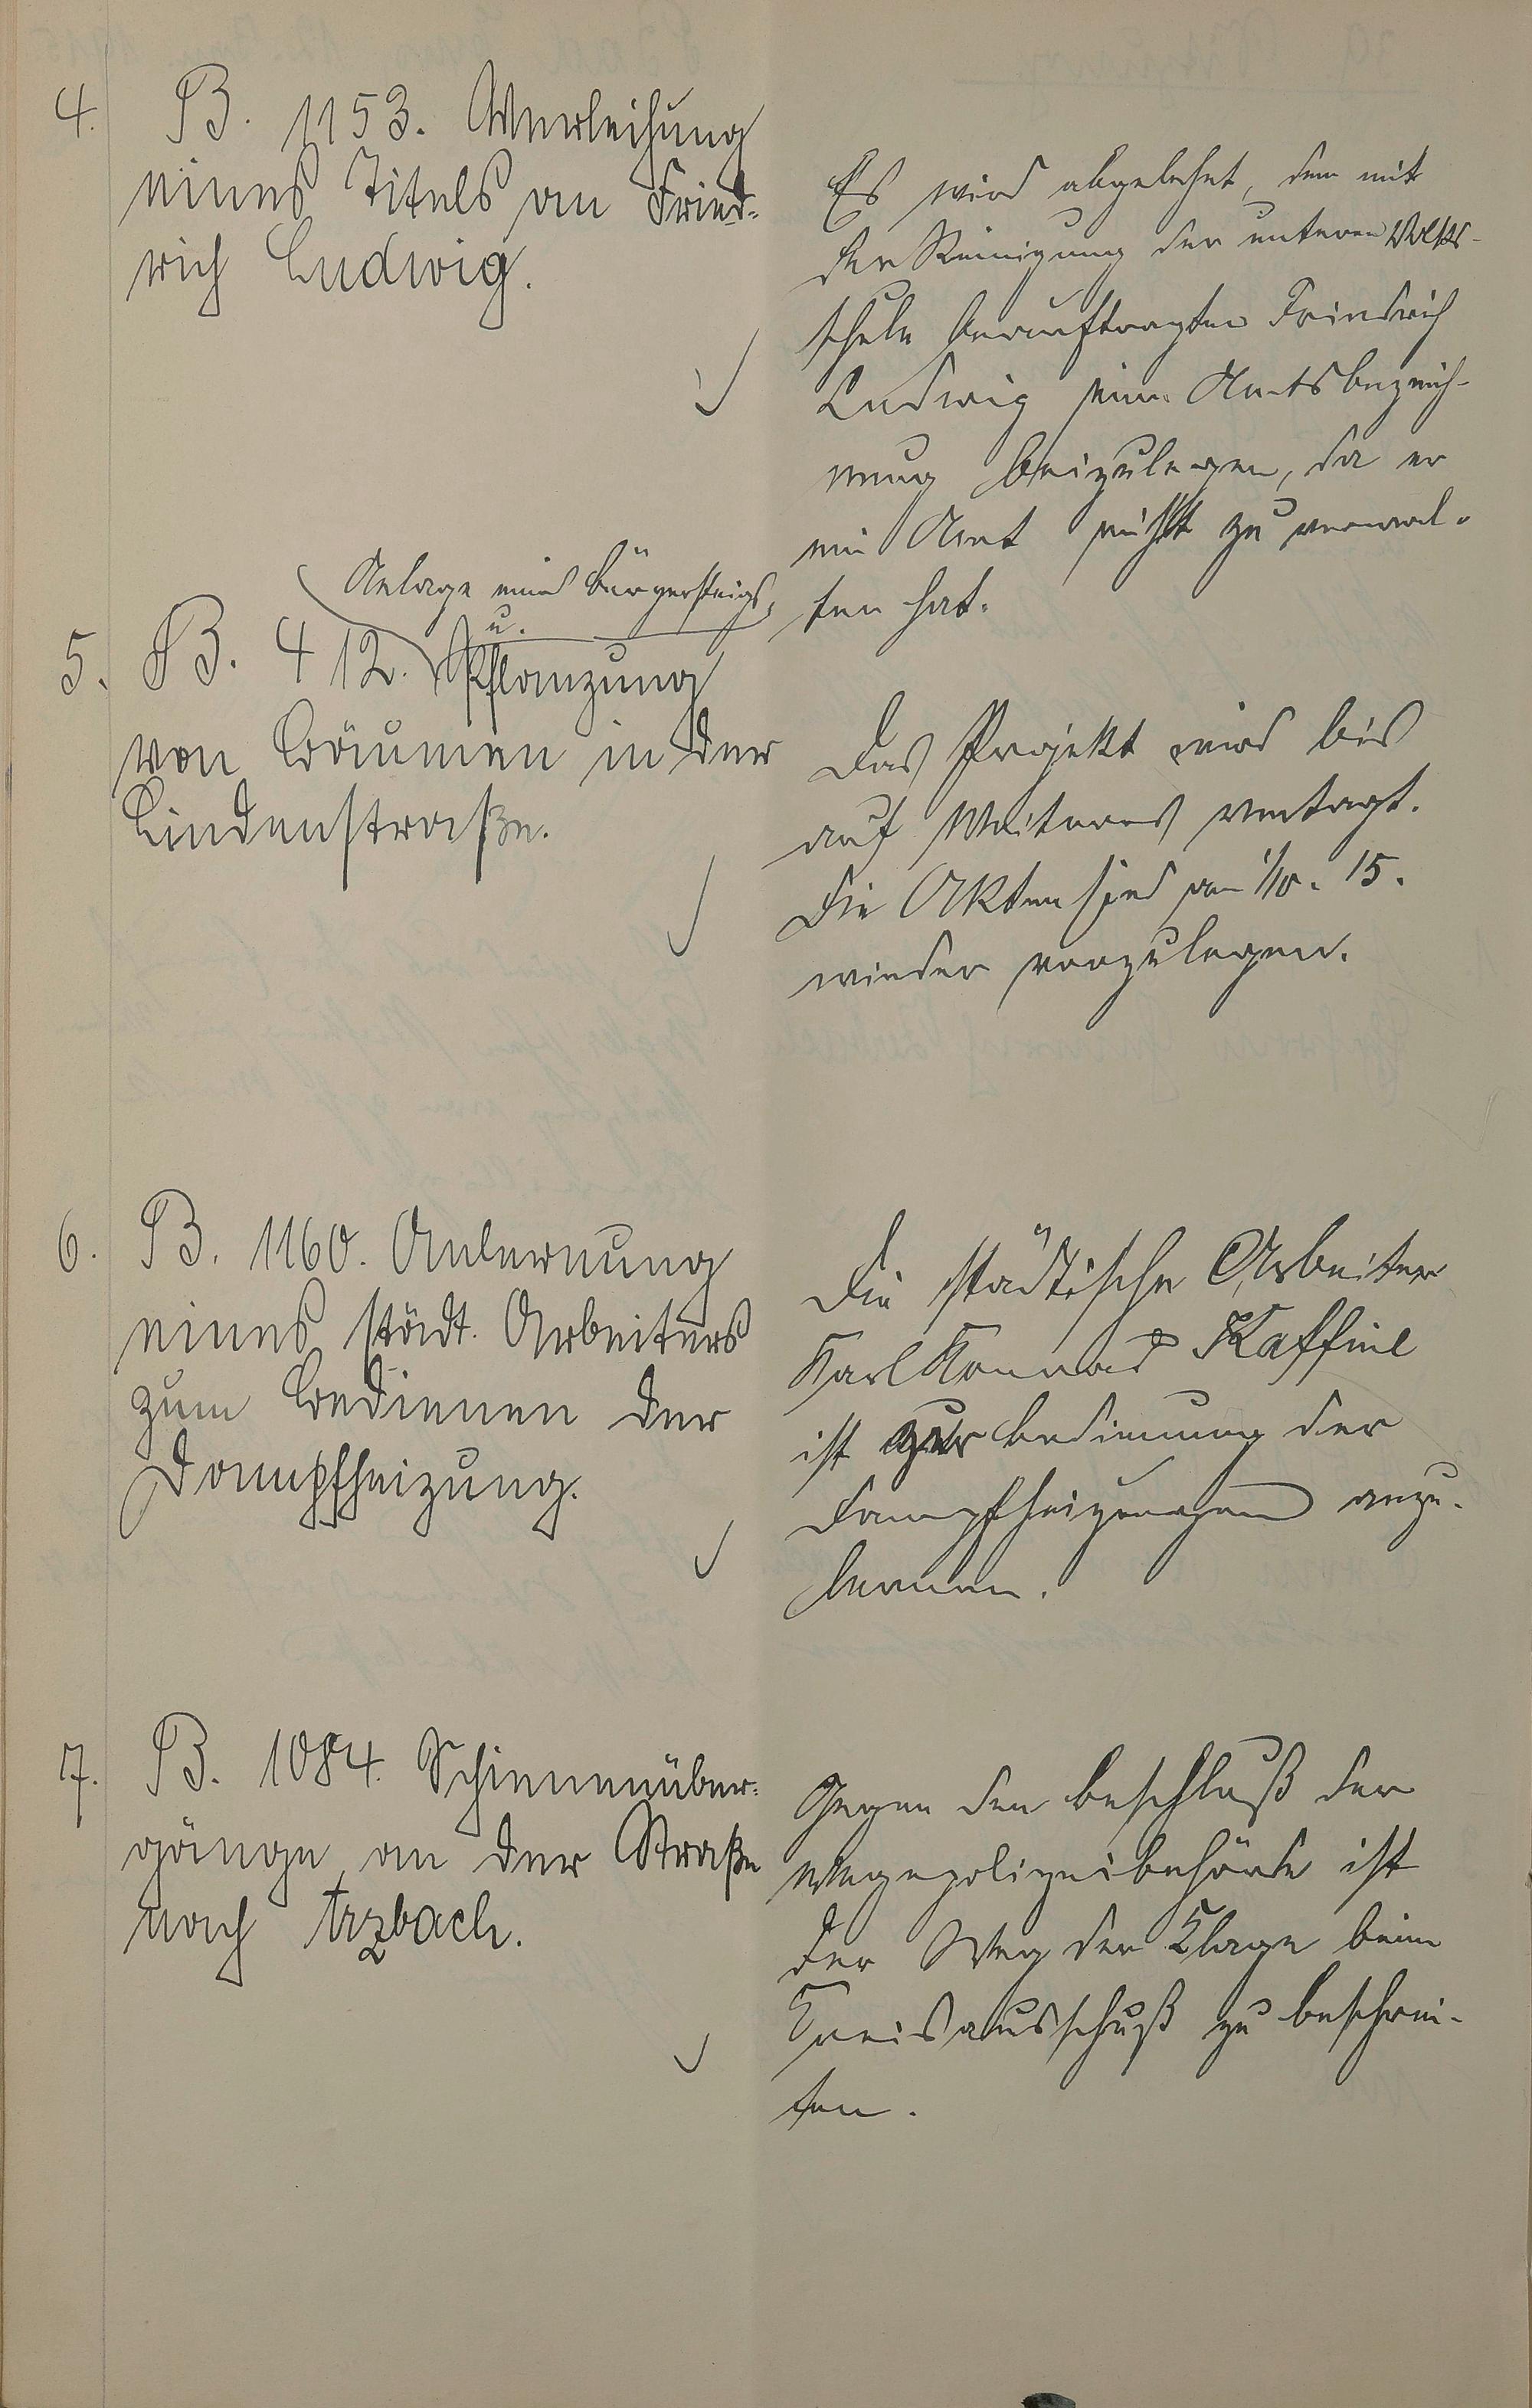 4. B. 1153. Verleihung
eines Titels an Fried-
rich Ludwig.
Es wird abgelehnt, dem mit
der Reinigung der unteren Volks-
schule beauftragten Friedrich
Ludwig eine Amtsbezeich-
nung beizulegen, da er
ein Amt nicht zu verwal-
ten hat.
Anlage eines Bürgersteigs
u.
5. B. 412. Pflanzung
von Bäumen in der
Lindenstraße.
Das Projekt wird bis
auf Weiteres vertagt.
Die Akten sind am 1/10. 15.
wieder vorzulegen.
6. B. 1160. Anlernung
eines städt. Arbeiters
zum Bedienen der
Dampfheizung.
Die städtische Arbeiter
Karl Konrad Kaffine
ist zur Bedienung der
Dampfheizungen anzu-
lernen.
7. B. 1084. Schienenüber-
gänge an der Straße
nach Arzbach.
Gegen den Beschluß der
Wegepolizeibehörde ist
der Weg der Klage beim
Kreisausschuß zu beschrei-
ten.